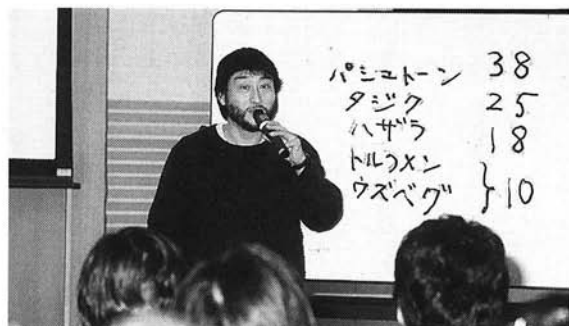 パシュトーン 38
タジク 25
ハザラ 18
トルクメン
ウズベグ } 10